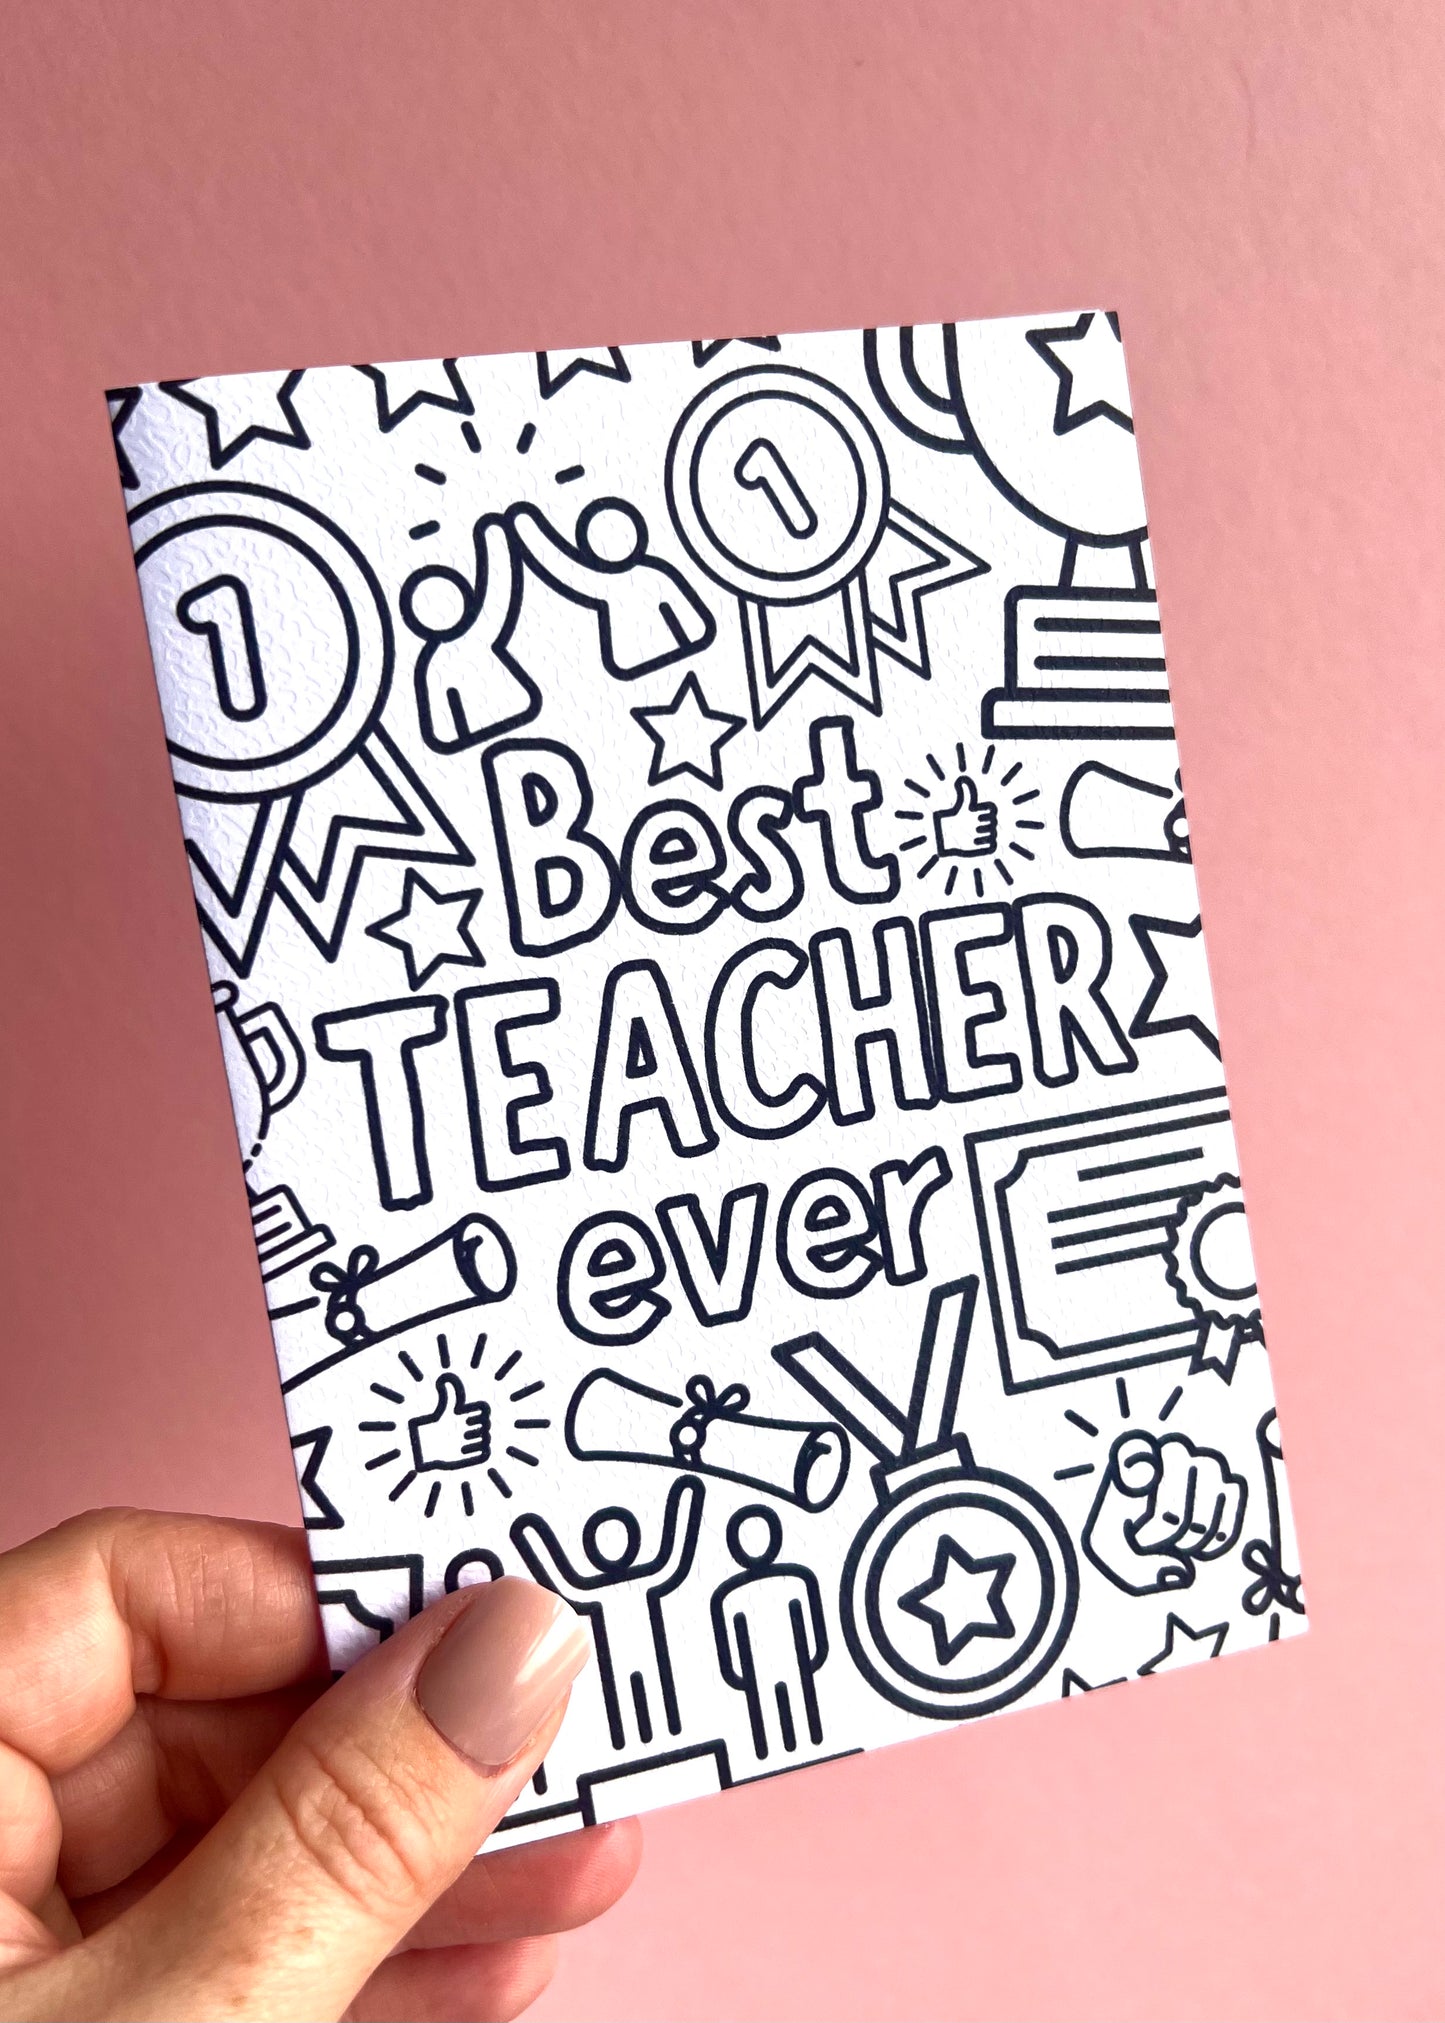 1
1
Best
TEACHER
ever